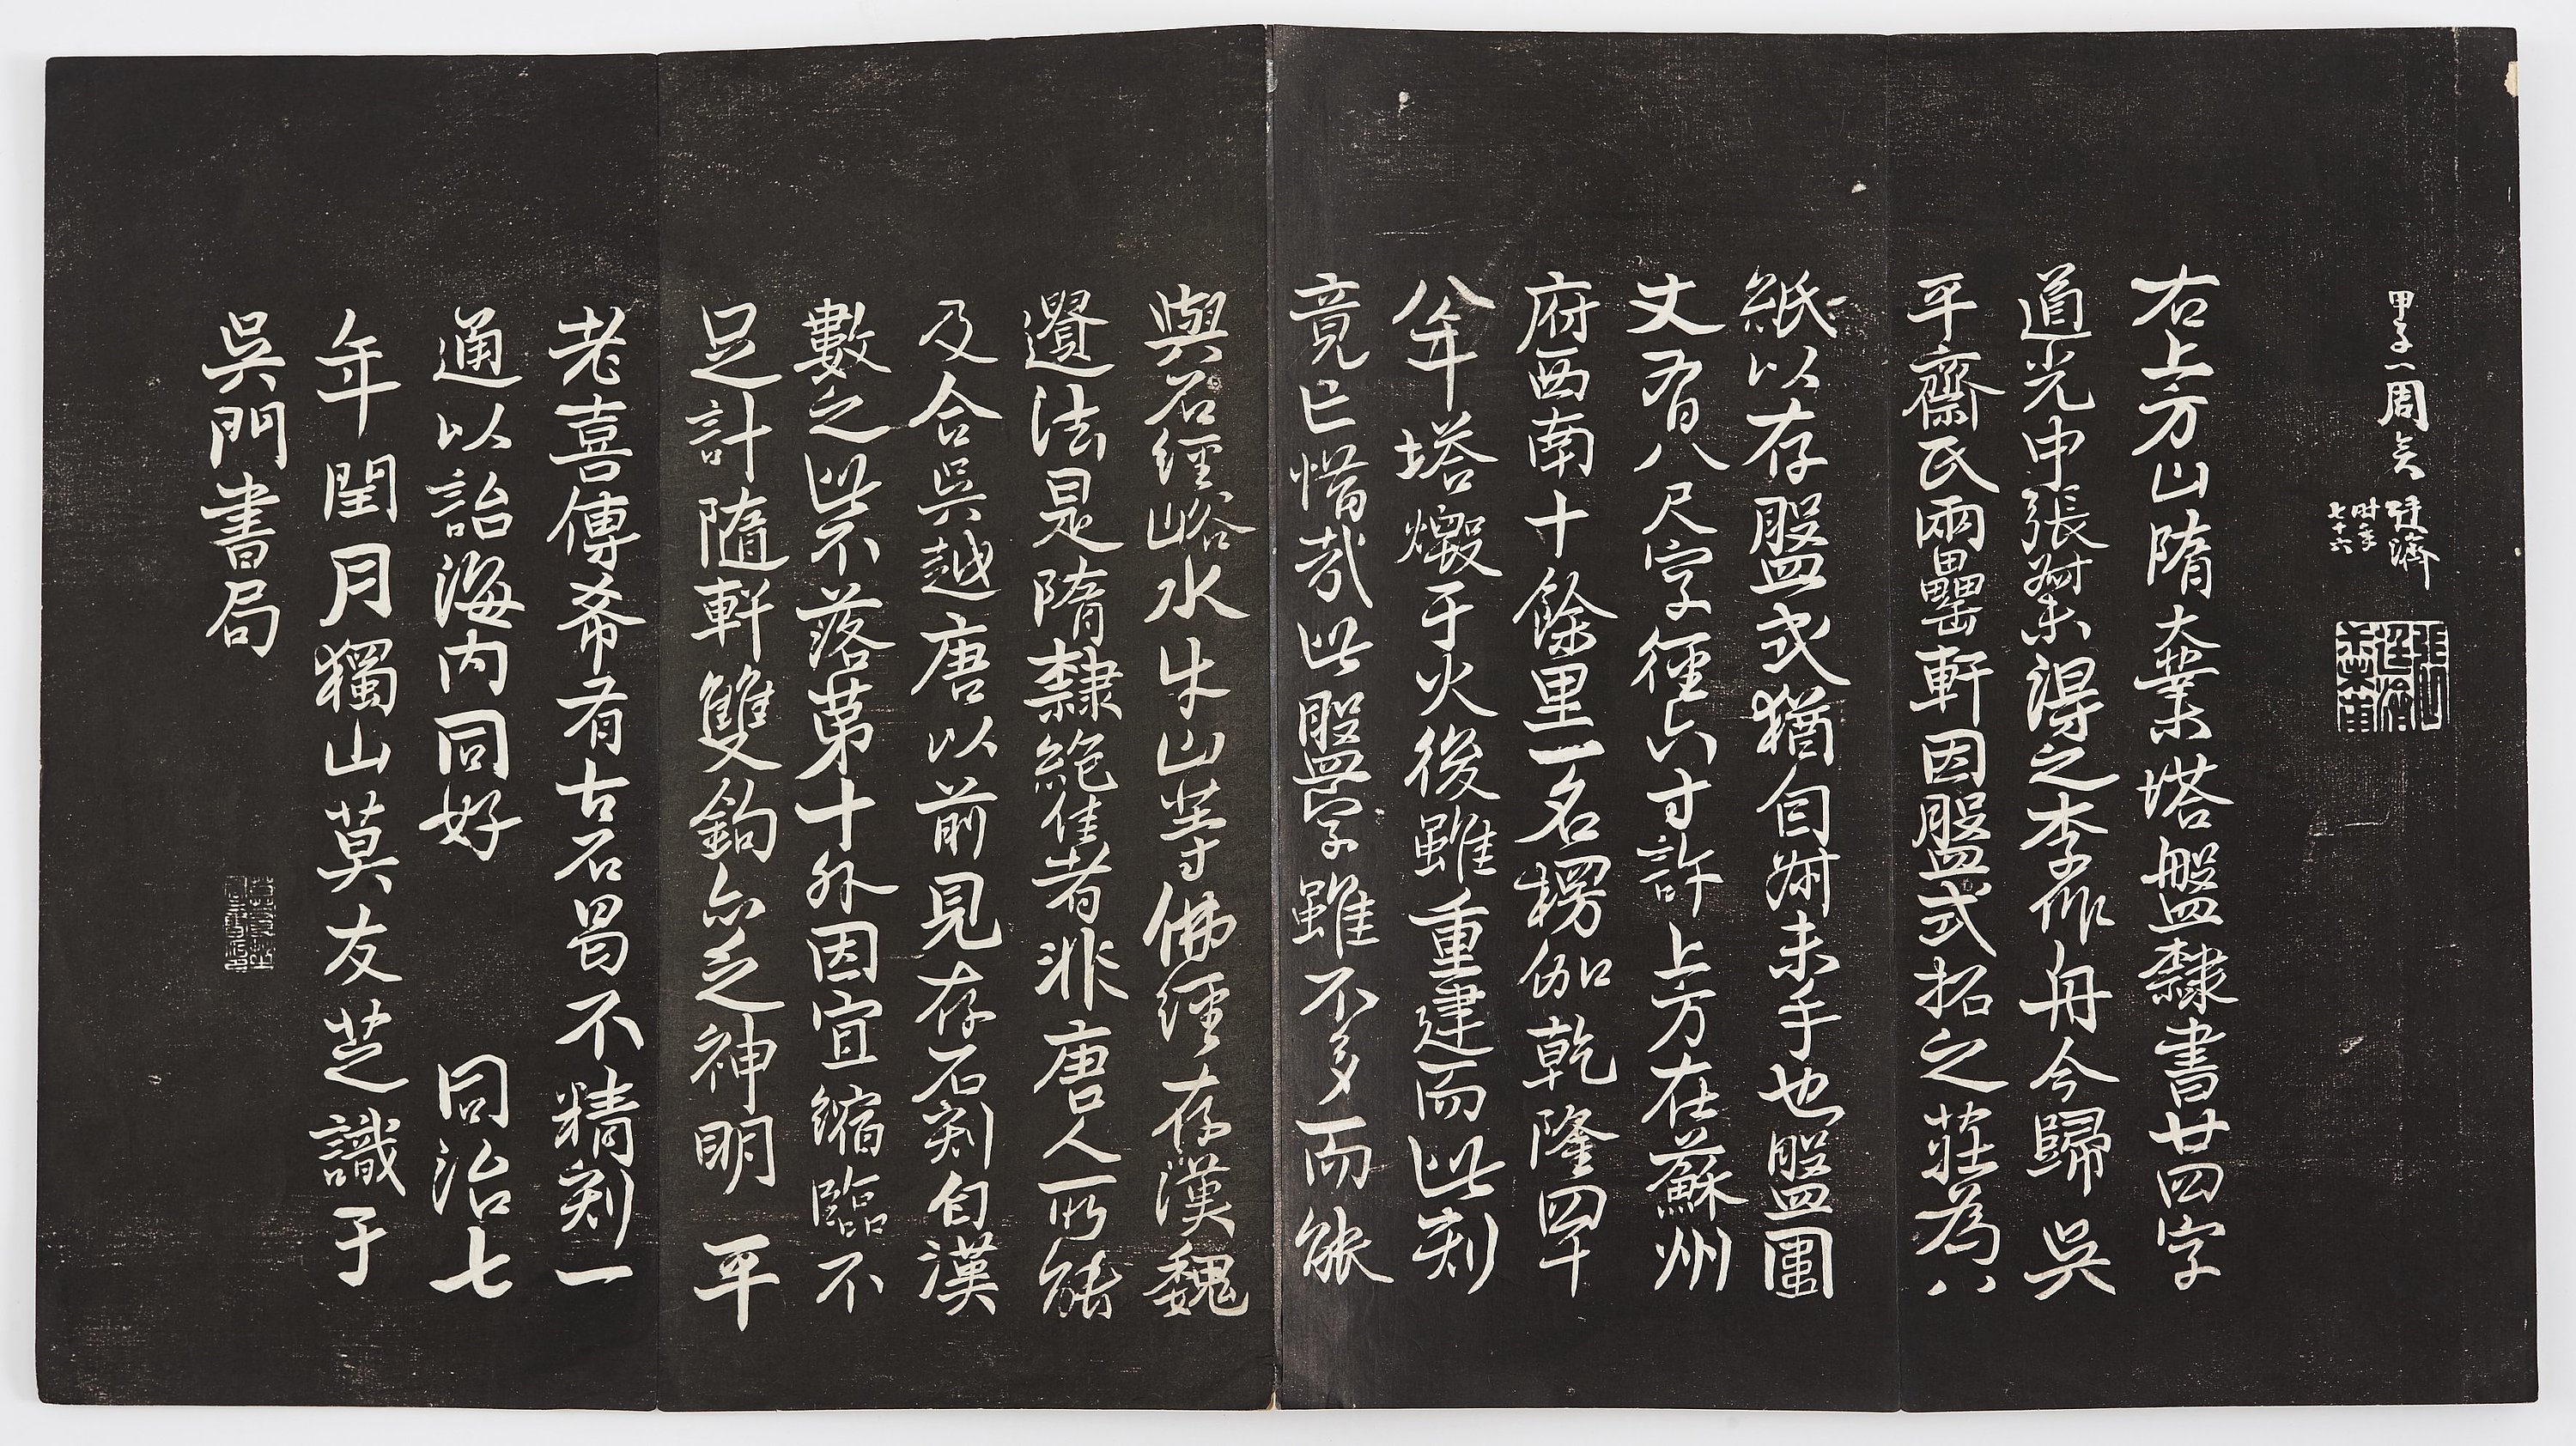 甲子一周矣
廷濟
時年
七十六
右上方山隋大業塔盤隸書廿四字
道光中張尗未得之李作舟今歸吳
平齋氏兩罍軒因盤式拓之莊為八
紙以存盤式猶自尗未手也盤圍
丈有八尺字徑六寸許上方在蘇州
府西南十餘里一名楞伽乾隆四十
八年塔燬于火後雖重建而此刻
竟亡惜哉此盤字雖不多而能
與石經峪水牛山等佛經存漢魏
遺法是隋隸絕佳者非唐人所能
及合吳越唐以前見存石刻自漢
數之此不落第十外因宜縮臨不
足計隨軒雙鉤亦乏神明平
老喜傳希有古石曷不精刻一
通以詒海内同好 同治七
年閏月獨山莫友芝識于
吳門書局